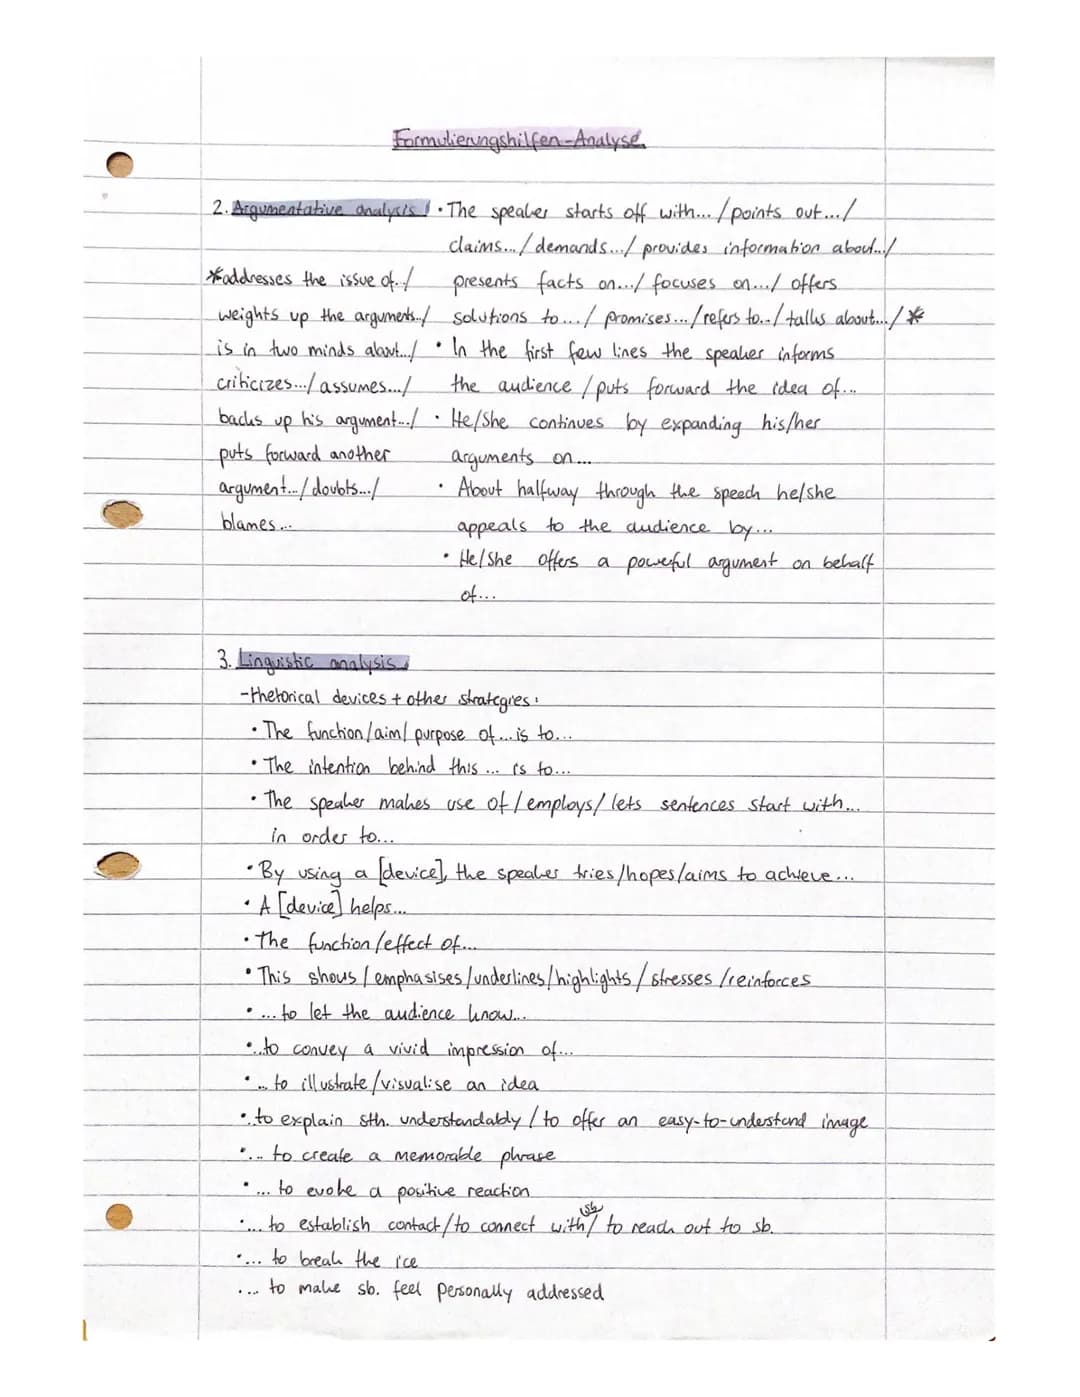 Formulierungshilfen-Analyse
2. Argumentative analysis • The speaker starts off with... / points out... /
claims... / demands... / provides information about.../
presents facts on.../ focuses on.../ offers
solutions to... / promises... / refers to.../ talks about... / *
*addresses the issue of../
weights up the arguments../
is in two minds about.../
criticizes.../ assumes.../
backs up his argument.../
puts forward another
argument.../ doubts.../
blames...
• In the first few lines the speaker informs
the audience / puts forward the idea of...
• He/She continues by expanding his/her
arguments on...
• About halfway through the speech he/she
appeals to the audience by...
• He/She offers a powerful argument on behalf
of...
3. Linguistic analysis
-rhetorical devices + other strategies:
• The function/aim/ purpose of... is to...
• The intention behind this ... is to...
• The speaker makes use of / employs/ lets sentences start with...
in order to...
• By using a [device], the speaker tries/hopes/aims to achieve...
• A [device] helps...
• The function/effect of...
• This shows / emphasises/underlines/highlights / stresses /reinforces
• ... to let the audience know...
• ..to convey a vivid impression of...
• .. to illustrate/visualise an idea
• ..to explain sth. understandably / to offer an easy-to-understand image
• ... to create a memorable phrase
• ... to evoke a positive reaction
•... to establish contact/to connect with sb/ to reach out to sb.
•... to break the ice
•... to make sb. feel personally addressed